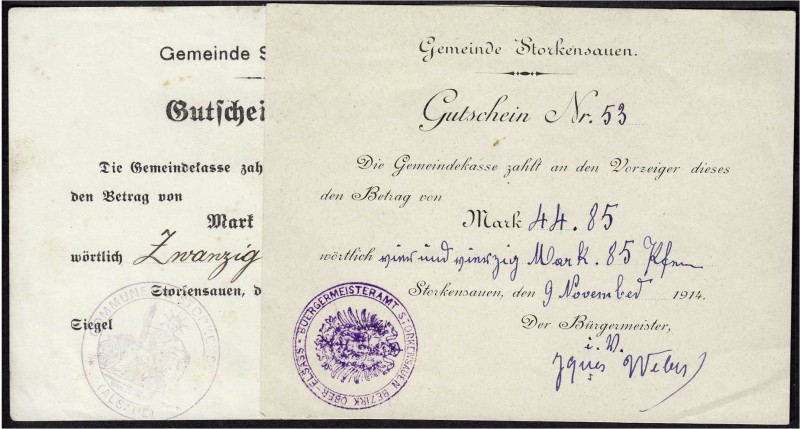 Gemeinde S
Gutschei
Die Gemeindekasse zah
den Betrag von
Mark
wörtlich Zwanzig
Storkensauen, d
Siegel
COMMUNE
(ALSACE)
Gemeinde Storkensauen.
Gutschein Nr. 53
Die Gemeindekasse zahlt an den Vorzeiger dieses
den Betrag von
Mark 44.85
wörtlich vier und vierzig Mark. 85 Pfen
Storkensauen, den 9 November 1914.
Der Bürgermeister,
i. V.
Weber
BUERGERMEISTERAMT STORKENSAUEN BEZIRK OBER-ELSASS